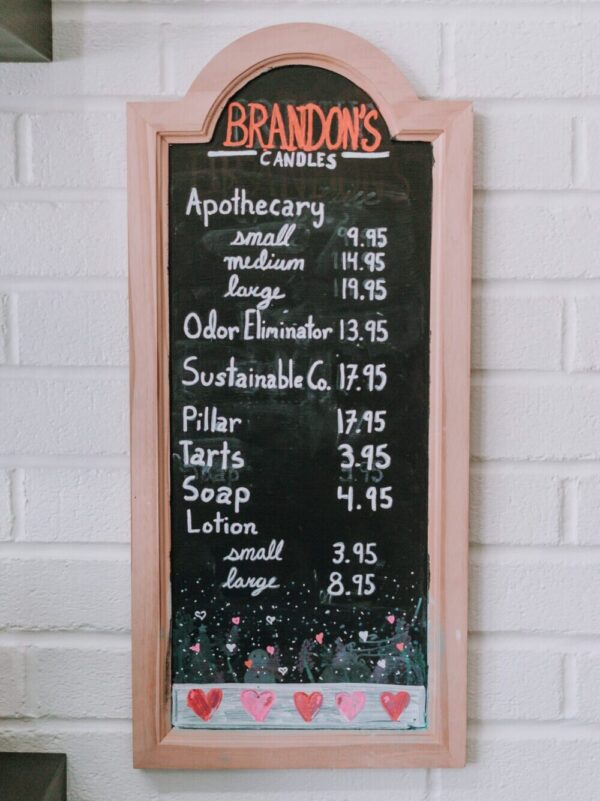 BRANDON'S
CANDLES
Apothecary
small 9.95
medium 14.95
large 19.95
Odor Eliminator 13.95
Sustainable Co. 17.95
Pillar 17.95
Tarts 3.95
Soap 4.95
Lotion
small 3.95
large 8.95